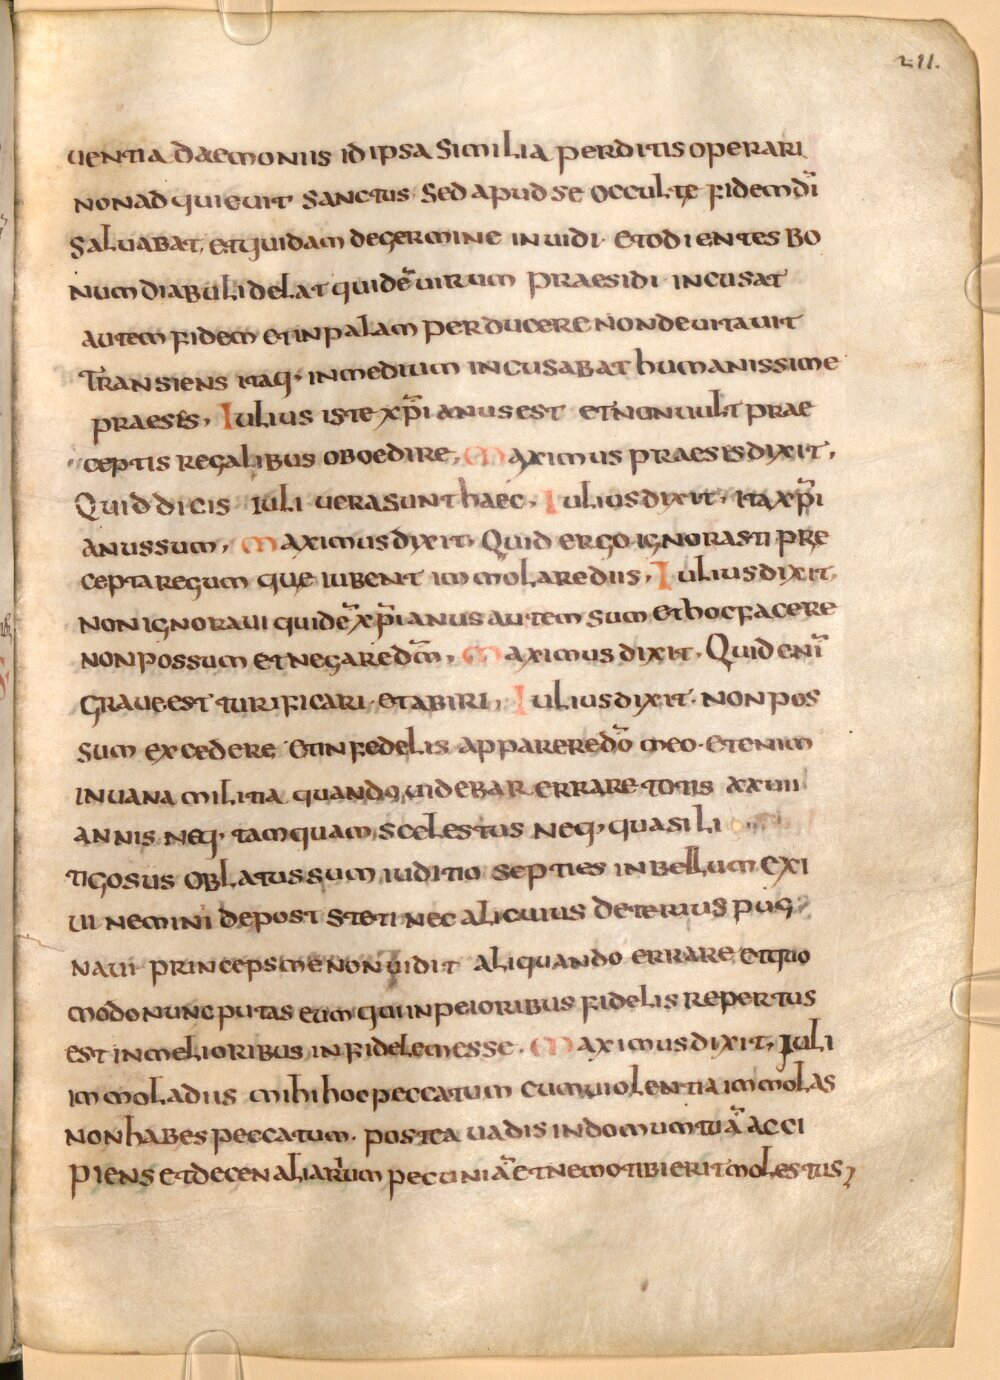 211.
uentia daemoniis id ipsa similia perditis operari
non adquieuit sanctus sed apud se occulte fidem dī
saluabat, et quidam de germine inuidi et odientes bo
num diabuli delat quidē uirum praesidi incusat
autem fidem et in palam perducere non deuitauit
Transiens itaq· in medium incusabat humanissime
praeses, Iulius iste xp̄ianus est et non uult prae
ceptis regalibus oboedire, Maximus praeses dixit,
Quid dicis iuli uera sunt haec, Iulius dixit, ita xp̄i
anus sum, Maximus dixit, Quid ergo ignorasti pre
cepta regum que iubent immolare diis, Iulius dixit,
non ignoraui quidē xp̄ianus autem sum et hoc facere
non possum et negare dm̄, Maximus dixit, Quid enī
graue est turificari et abiri, Iulius dixit· non pos
sum excedere et infedelis apparere dō meo· etenim
in uana militia quando uidebar errare totis xxuii
annis neq· tamquam scelestus neq· quasi li
tigosus oblatus sum iuditio septies in bellum exi
ui nemini depost steti nec alicuius deterius pug
naui princeps me non uidit aliquando errare et quo
modo nunc putas eum qui in peioribus fidelis repertus
est in melioribus infidelem esse, Maximus dixit, Iuli
immola diis mihi hoc peccatum cum uiolentia immolas
non habes peccatum· postea uadis in domum tuā acci
piens et decenaliarum pecuniā et nemo tibi erit molestus,